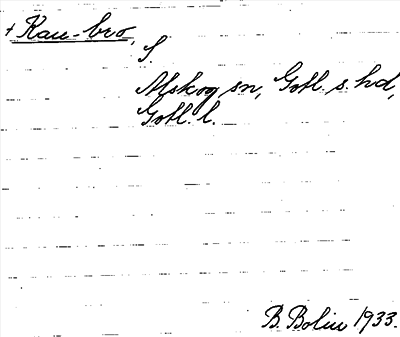 + Kau-bro,
S.
Alskog sn, Gotl. s. hd,
Gotl. l.
B. Bolin 1933.